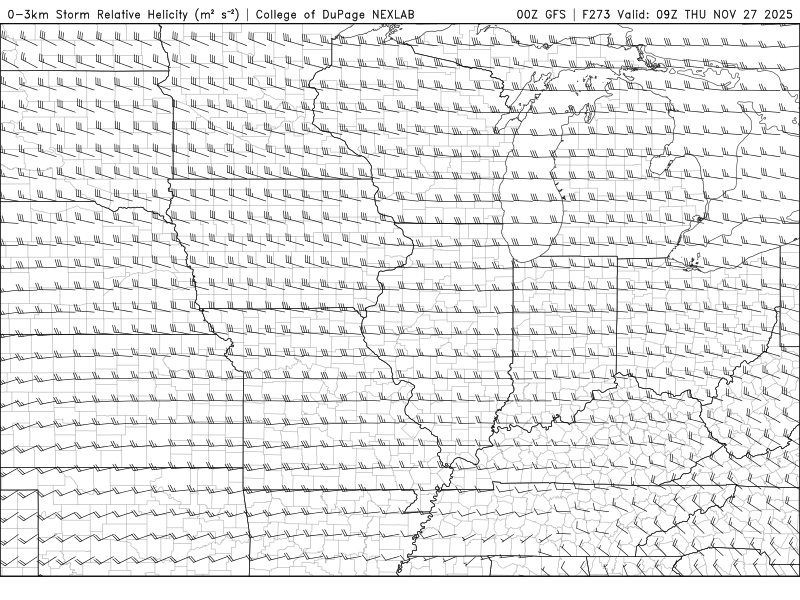 0-3km Storm Relative Helicity (m² s⁻²) | College of DuPage NEXLAB
00Z GFS | F273 Valid: 09Z THU NOV 27 2025